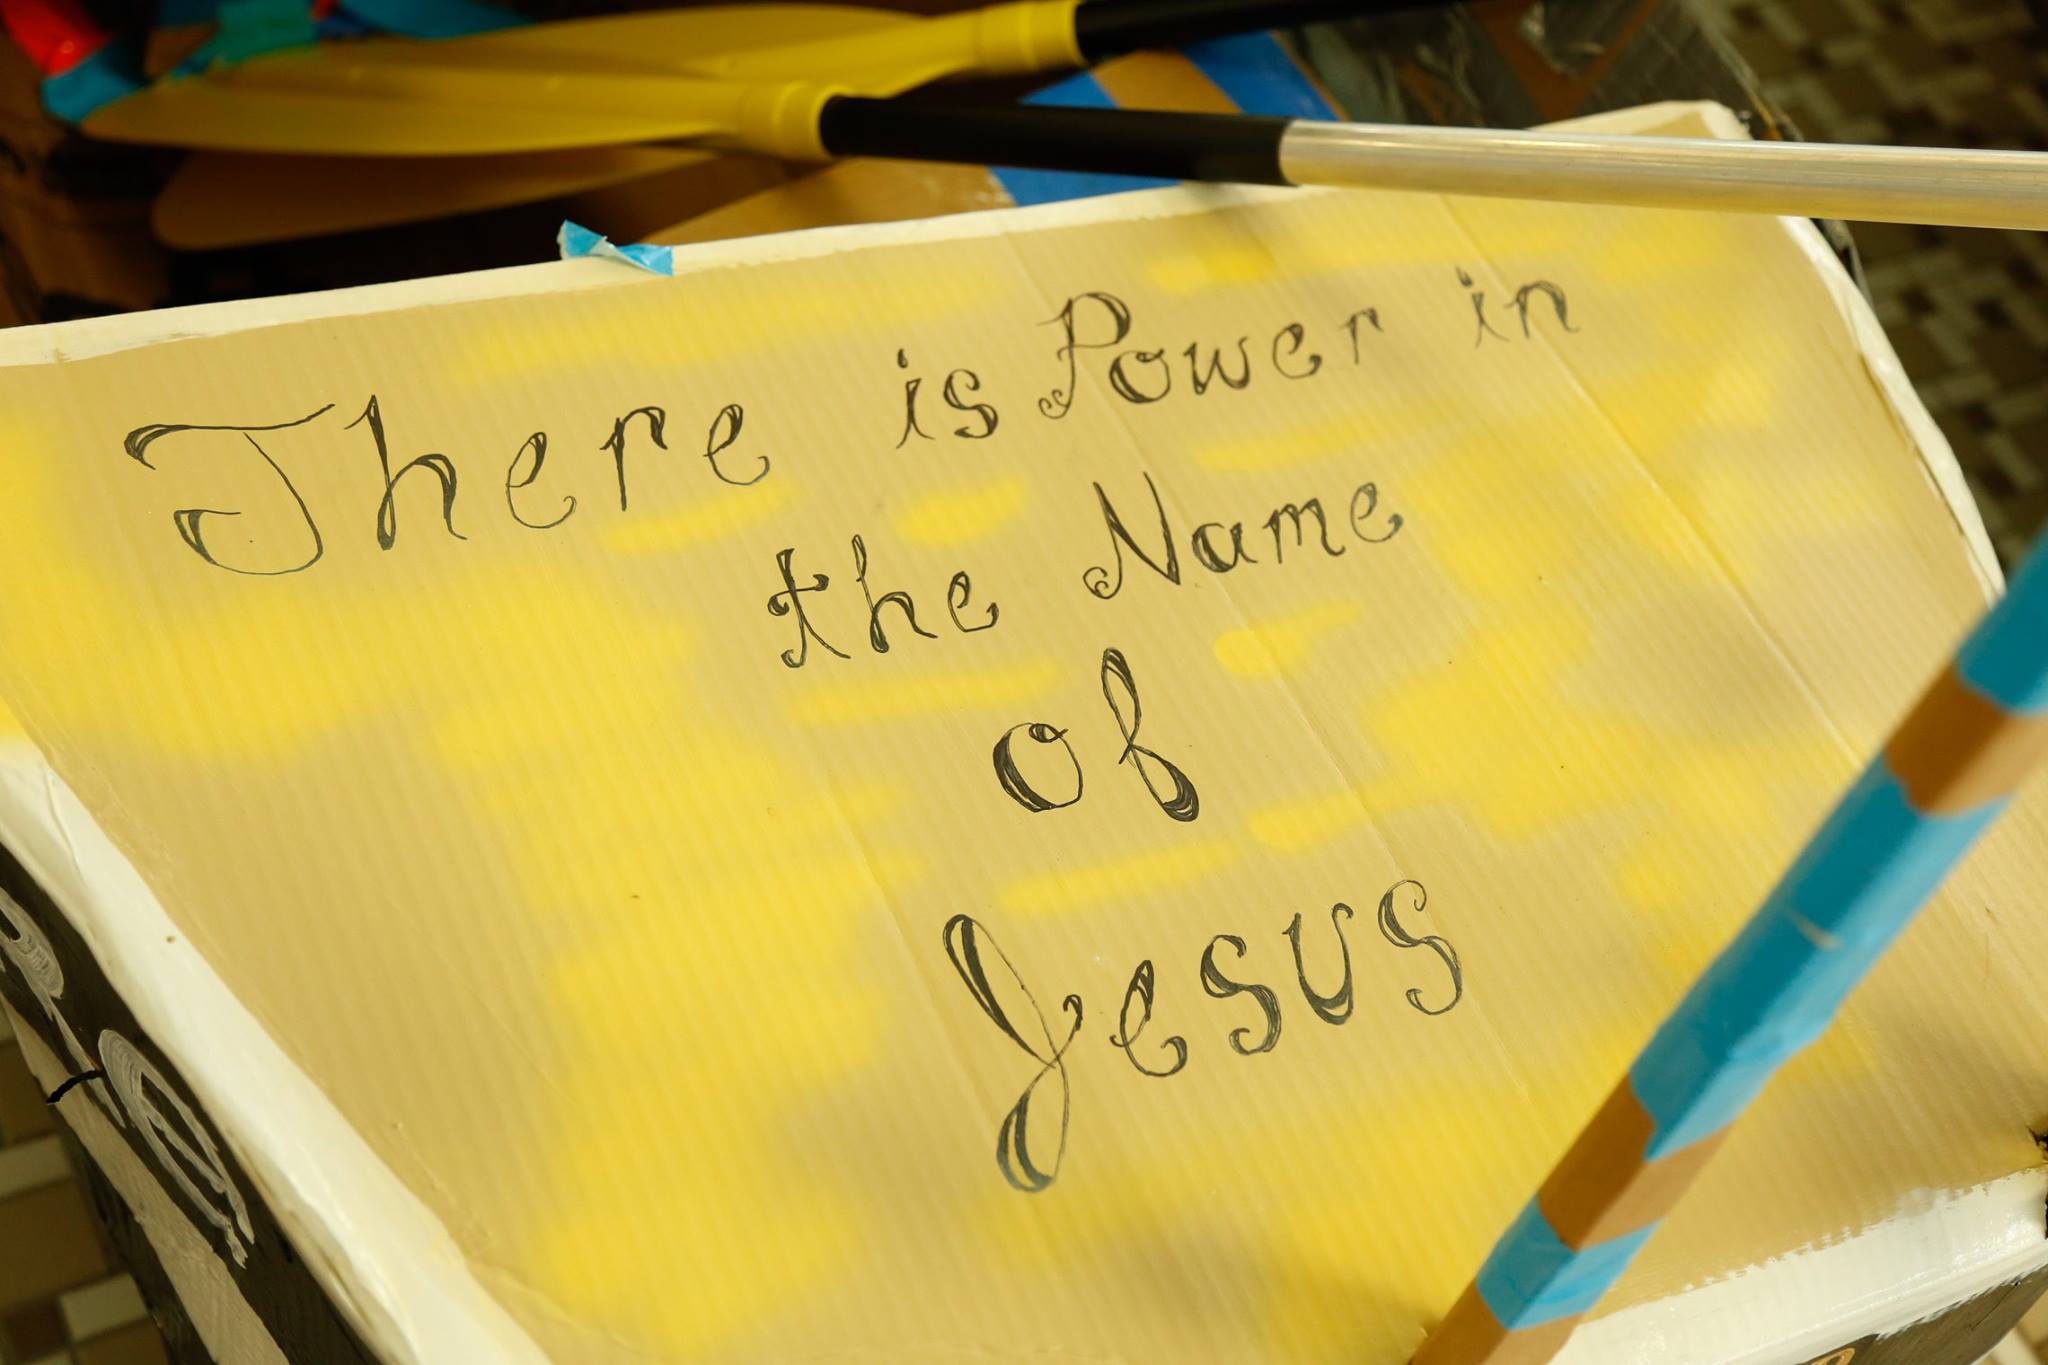 There is Power in
the Name
of
Jesus